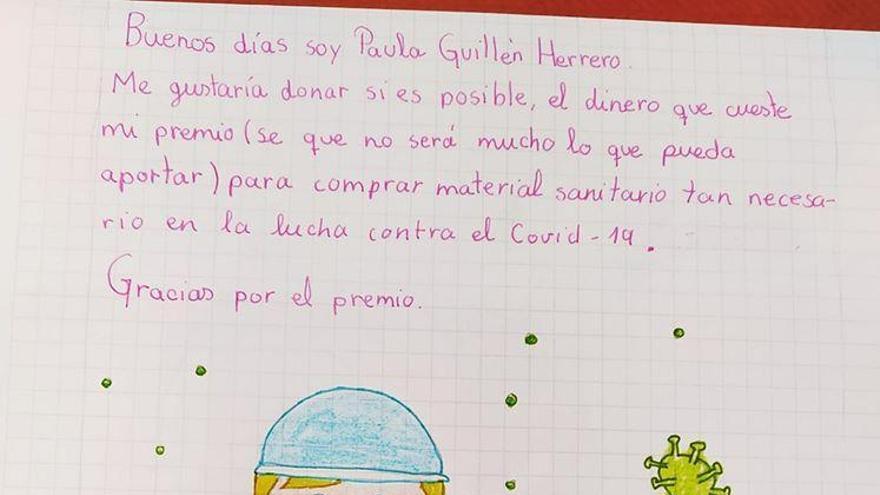 Buenos días soy Paula Guillén Herrero.
Me gustaría donar si es posible, el dinero que cueste
mi premio (se que no será mucho lo que pueda
aportar) para comprar material sanitario tan necesa-
rio en la lucha contra el Covid-19.
Gracias por el premio.